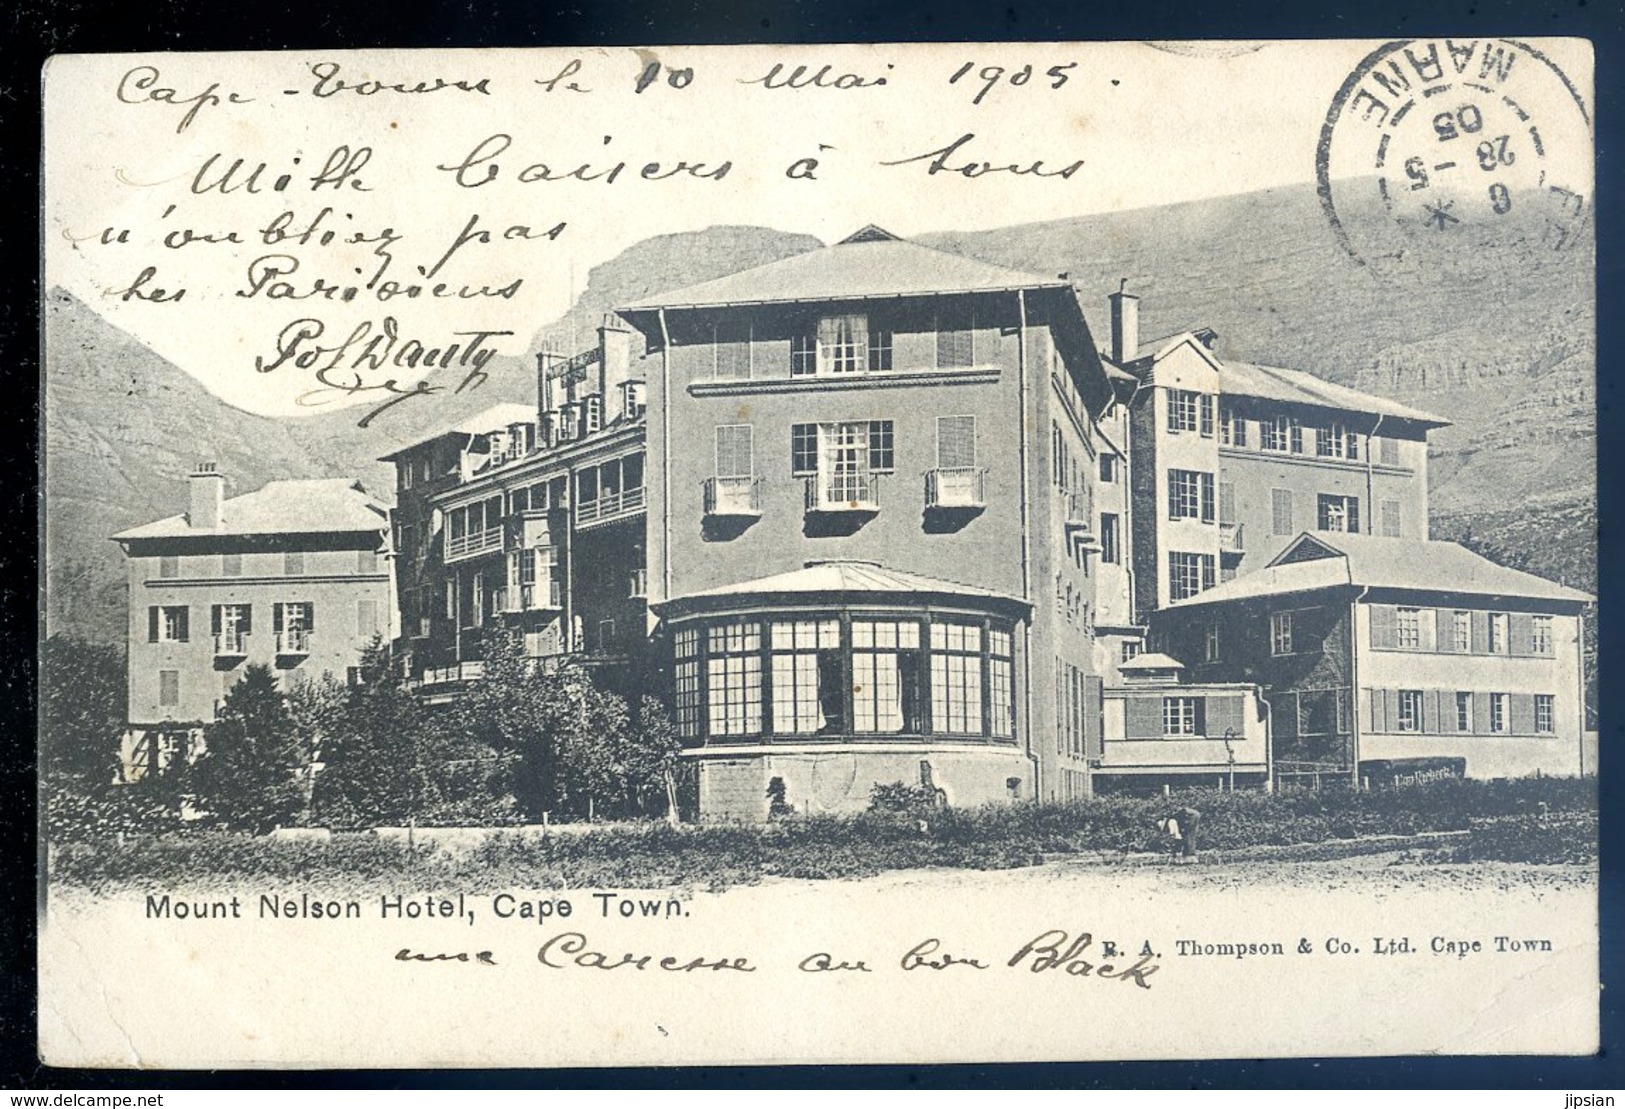 Cape-Town le 10 Mai 1905.
Mille baisers à tous
n'oubliez pas
les Parisiens
Pol Dauty
MARNE
6
28 - 5
05
Van Riebeck
Mount Nelson Hotel, Cape Town.
R. A. Thompson & Co. Ltd. Cape Town
une Caresse au bon Black
www.delcampe.net
jipsian